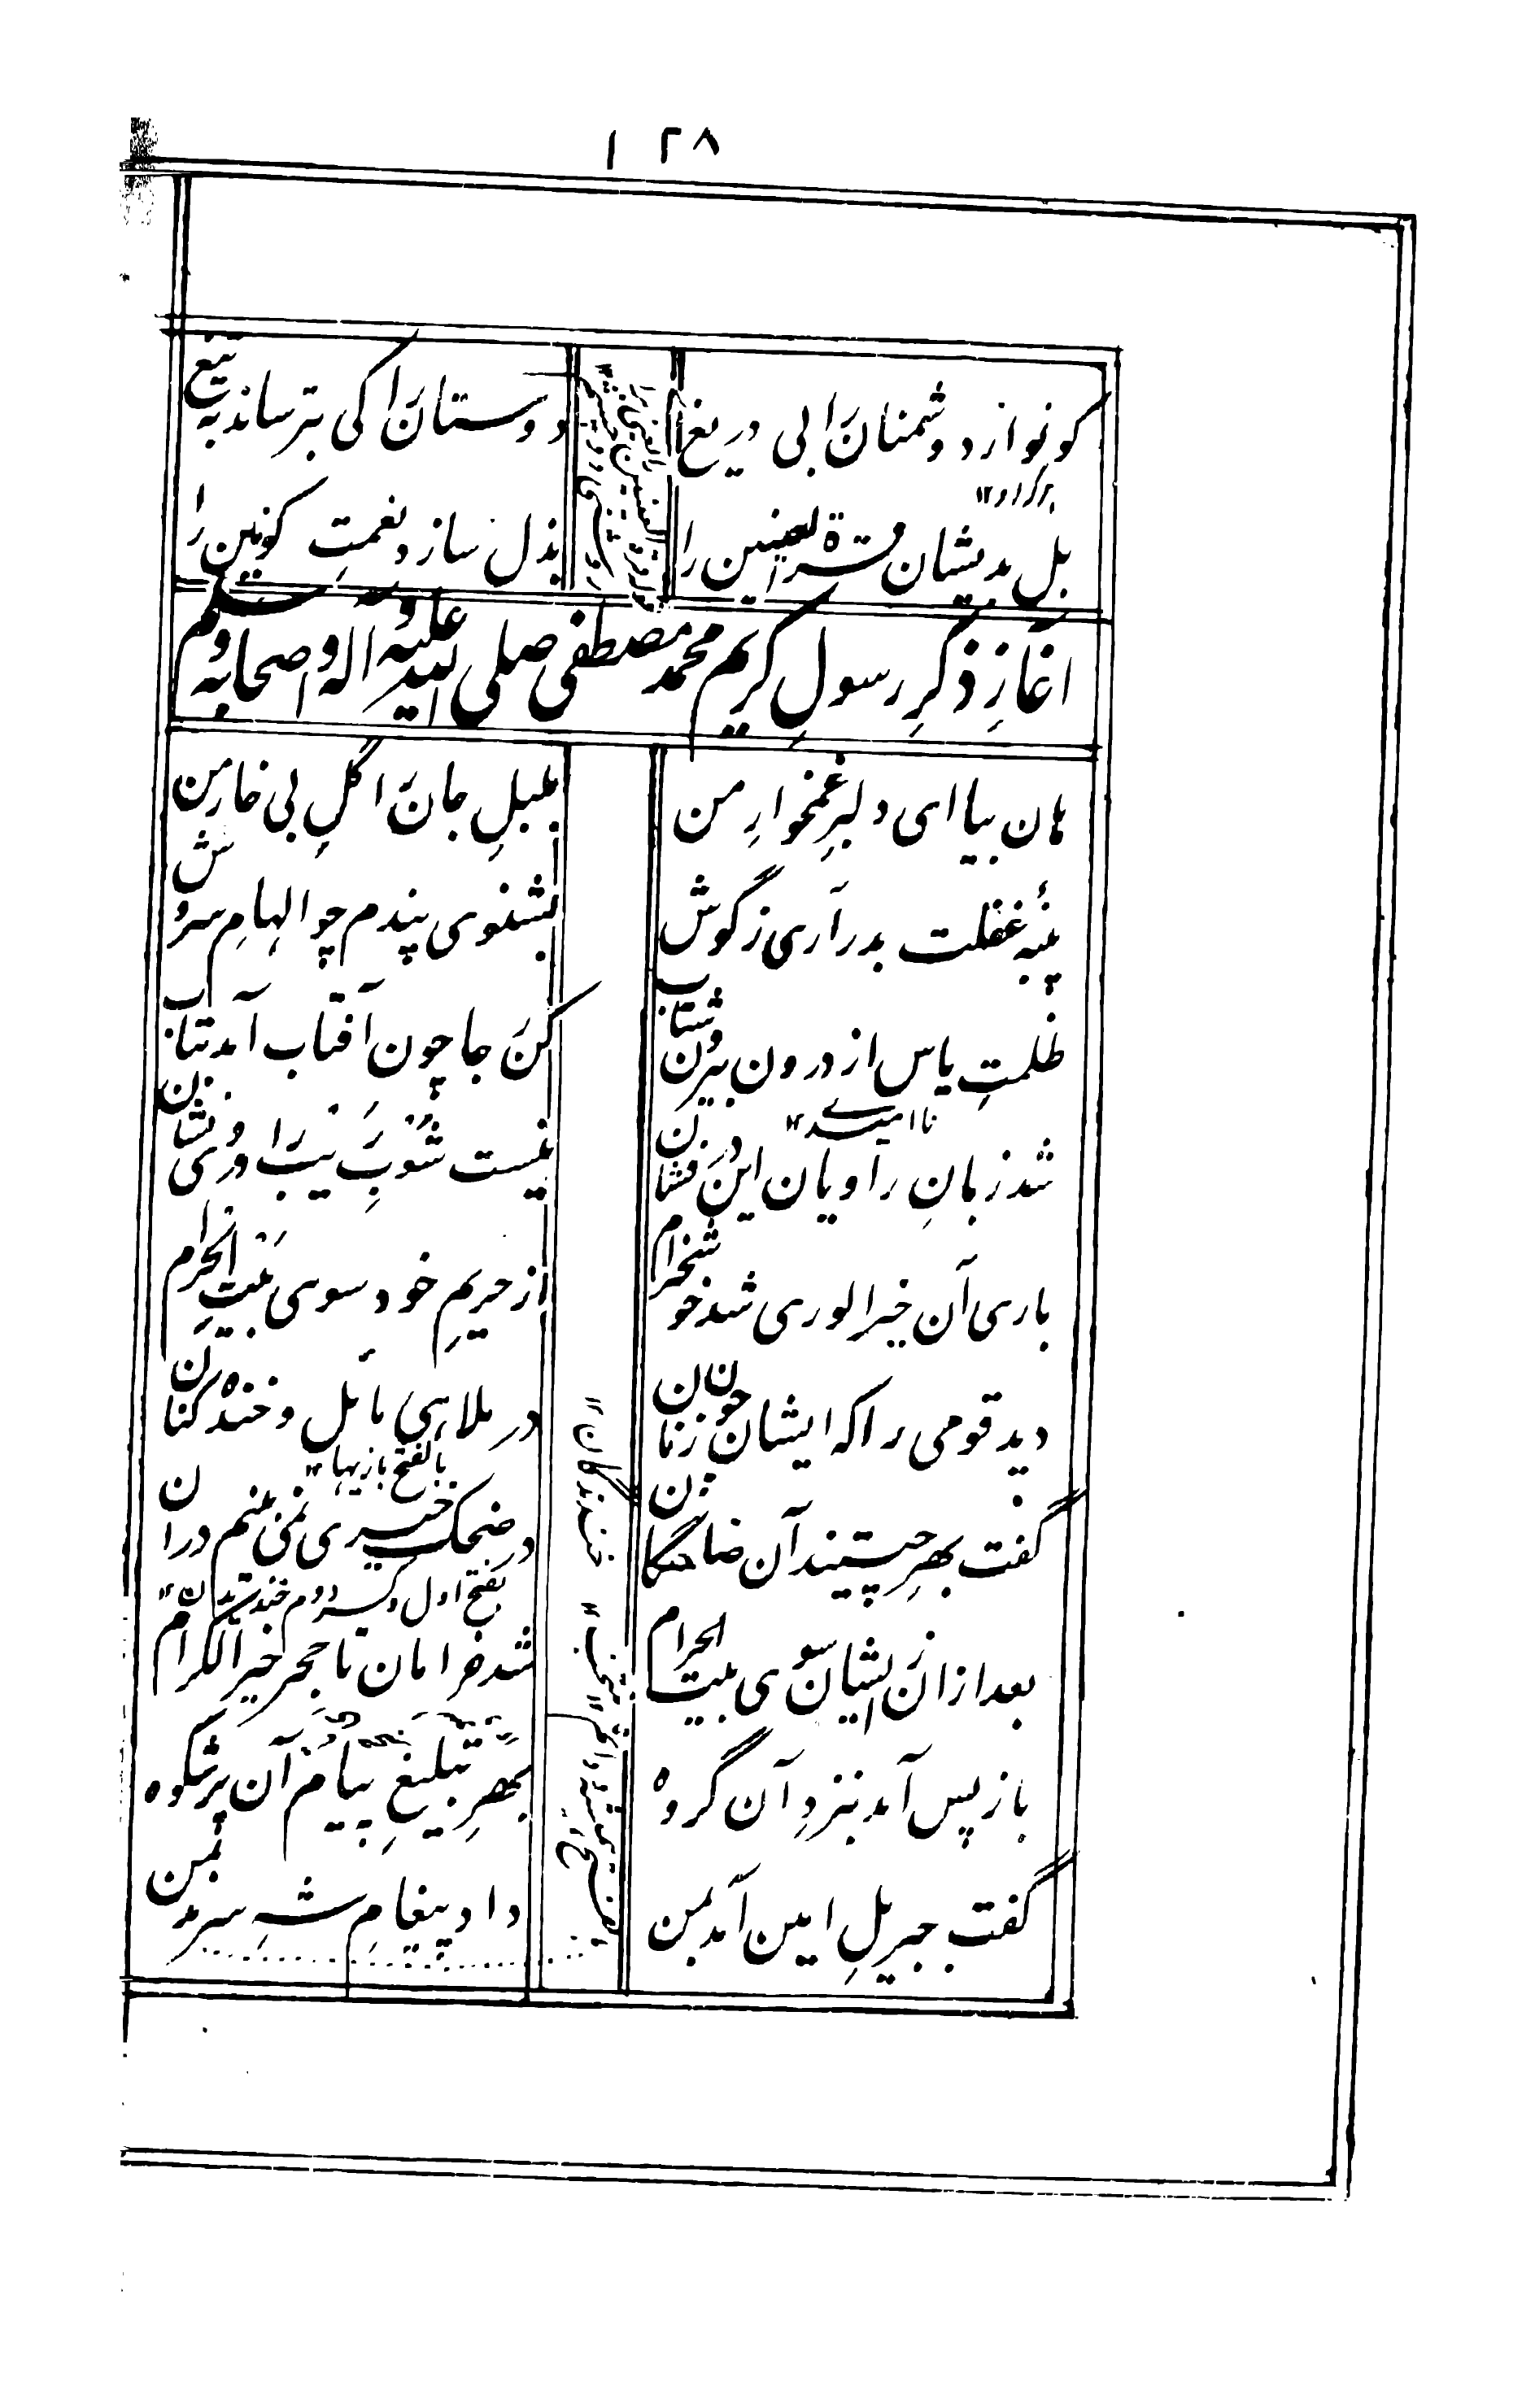 ۱۲۸
کو نوازد دشمنان را بی دریغ
دوستان را کی بترساند به تیغ
هرگز او ۱۲
بل بدیشان قرة العینین را
بذل سازد نعمتِ کونین را
آغازِ ذکرِ رسولِ کریم محمد مصطفی صلی الله علیه و آله و اصحابه وسلم
هان بیا ای دلبرِ غمخوارِ من
بلبلِ جان را گلِ بی خارِ من
پنبهٔ غفلت بدر آری ز گوش
بشنوی پندم چو الهامِ سروش
ظلمتِ یاس از درون بیرون شتاب
کن جا چون آفتاب آمد بتاب
ناامیدے ۱۲
شد زبانِ راویان این در فشان
نیست شوبِ رَیب را در وی نشان
باری آن خیر الوری شد خوشخرام
از حریمِ خود سوی بیتِ الحرام
دید قومی را که ایشان چون زنان
در ملاهی مائل و خنده کنان
بالفتح بازیها ۱۲
گفت بهرِ چیستید آن ضاحکان
در ضحک خیری نمی بینم در آن
خندندگان ۱۲
بفتح اول و کسر دوم خندیدن ۱۲
بعد ازان زیشان سوی بیت الحرام
شد خرامان تا حجر خیر الکرام
باز پس آمد بنزدِ آن گروه
بهرِ تبلیغِ پیام آن پرشکوه
گفت جبریلِ امین آمد بمن
داد پیغامِ شهِ سرمد بمن